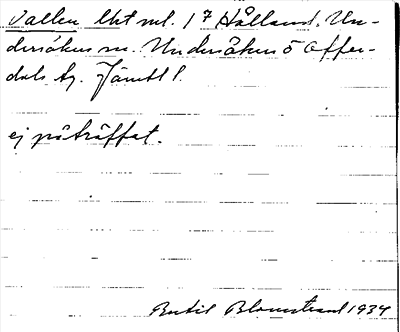 Vallen lht nl. 1 7 Hålland, Un-
dersåkers sn. Undersåkers o Offer-
dals tg. Jämtl l.
ej påträffat.
Bertil Blomstrand 1934